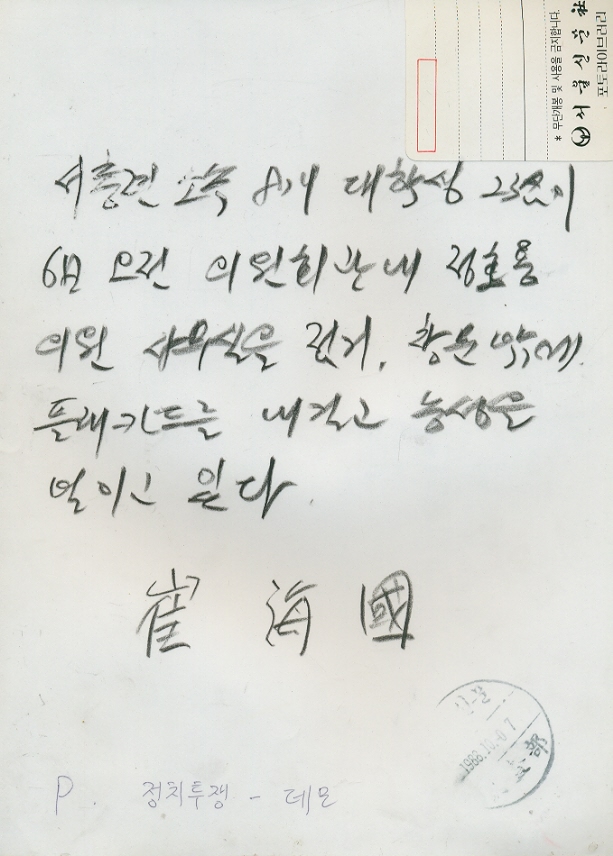 포토라이브러리
서울신문
* 무단개봉 및 사용을 금지합니다.
서총련 소속 8개 대학생 23명이
6日 오전 의원회관내 정호용
의원 사무실을 점거, 창문밖에
플래카드를 내걸고 농성을
벌이고 있다.
崔 海 國
신문
1988.10.07
部
P. 정치투쟁 - 데모